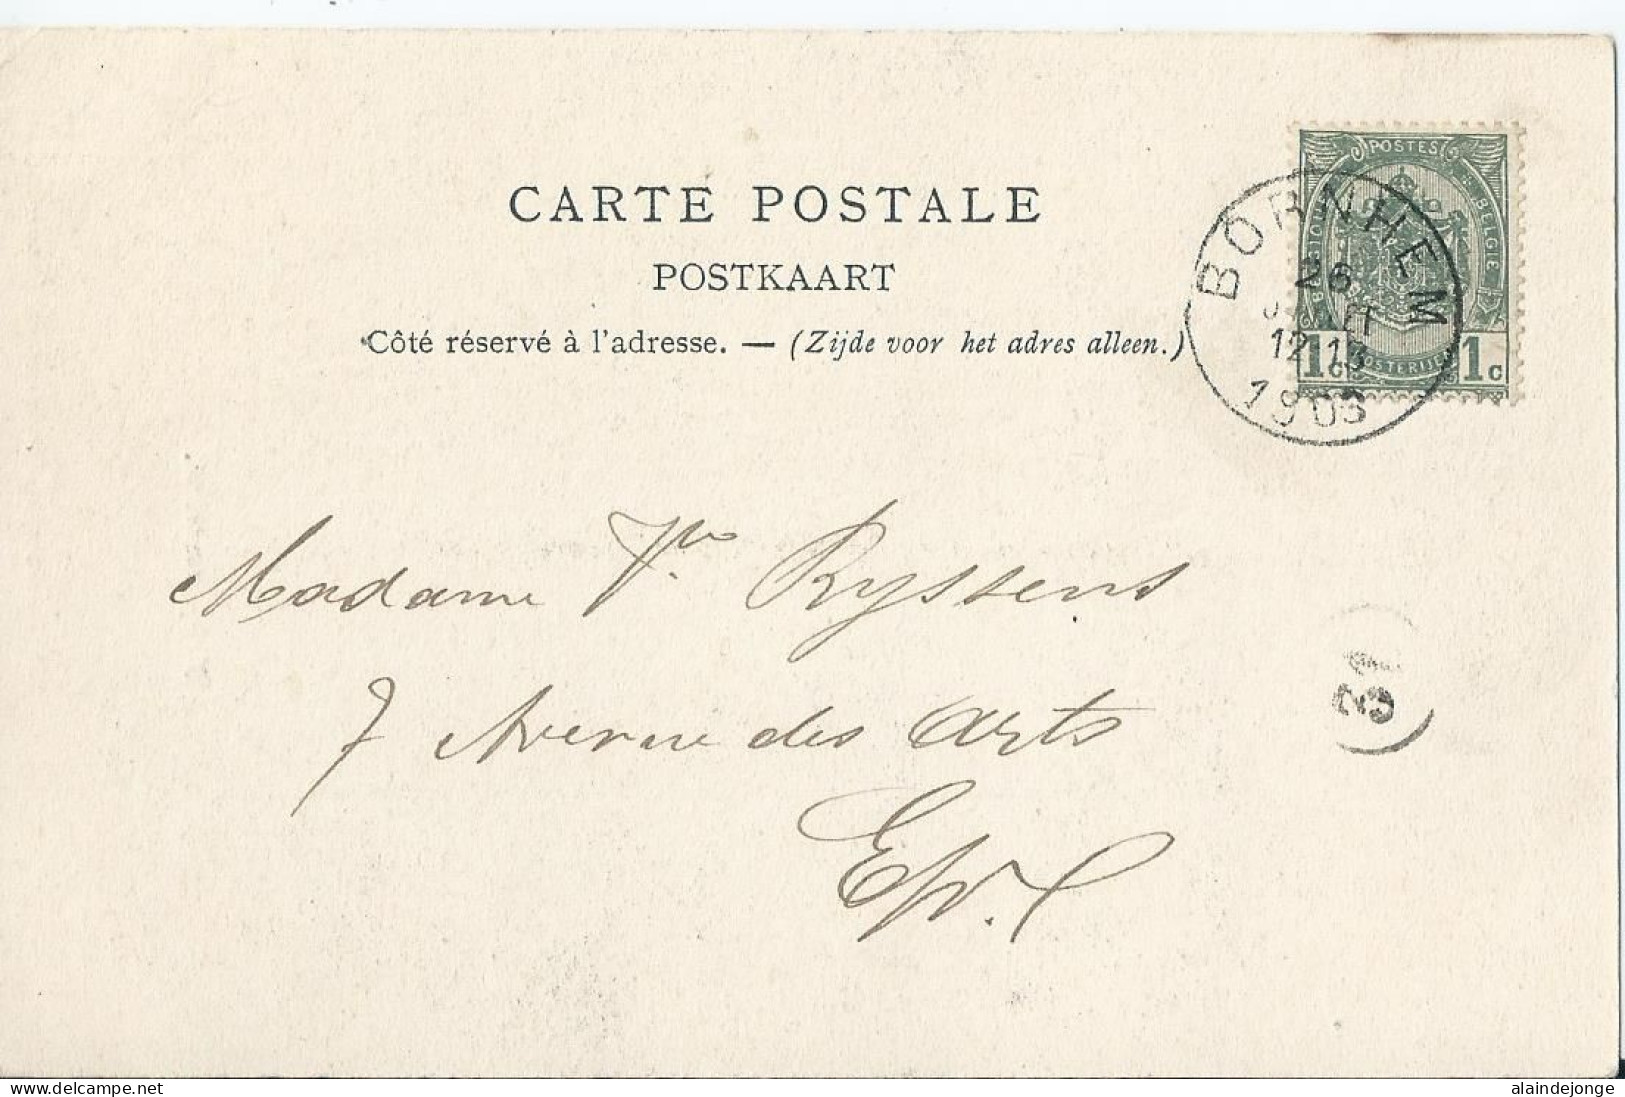 CARTE POSTALE
POSTKAART
Côté réservé à l'adresse. — (Zijde voor het adres alleen.)
POSTES
BELGIE
1c 1c
BORNHEM
26
12-13
1903
Madame Vve Ryssens
7 Avenue des Arts
E/V.
delcampe.net
alaindejonge